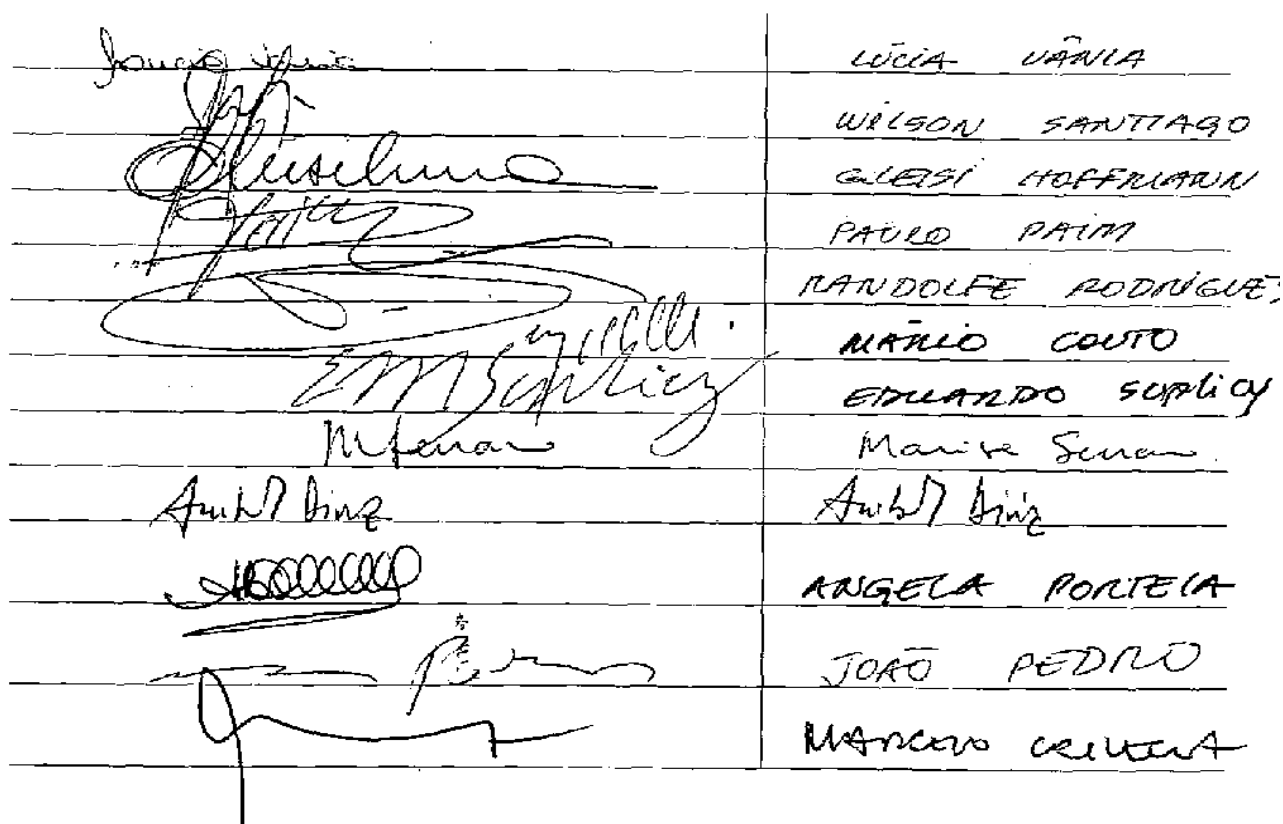 Lúcia Vânia LÚCIA VÂNIA
WILSON SANTIAGO
GLEISI HOFFMANN
PAULO PAIM
RANDOLFE RODRIGUES
MÁRIO COUTO
EMSuplicy EDUARDO SUPLICY
MSerrano Marisa Serrano
Anibal Diniz Anibal Diniz
ANGELA PORTELA
JOÃO PEDRO
MARCELO CRIVELLA